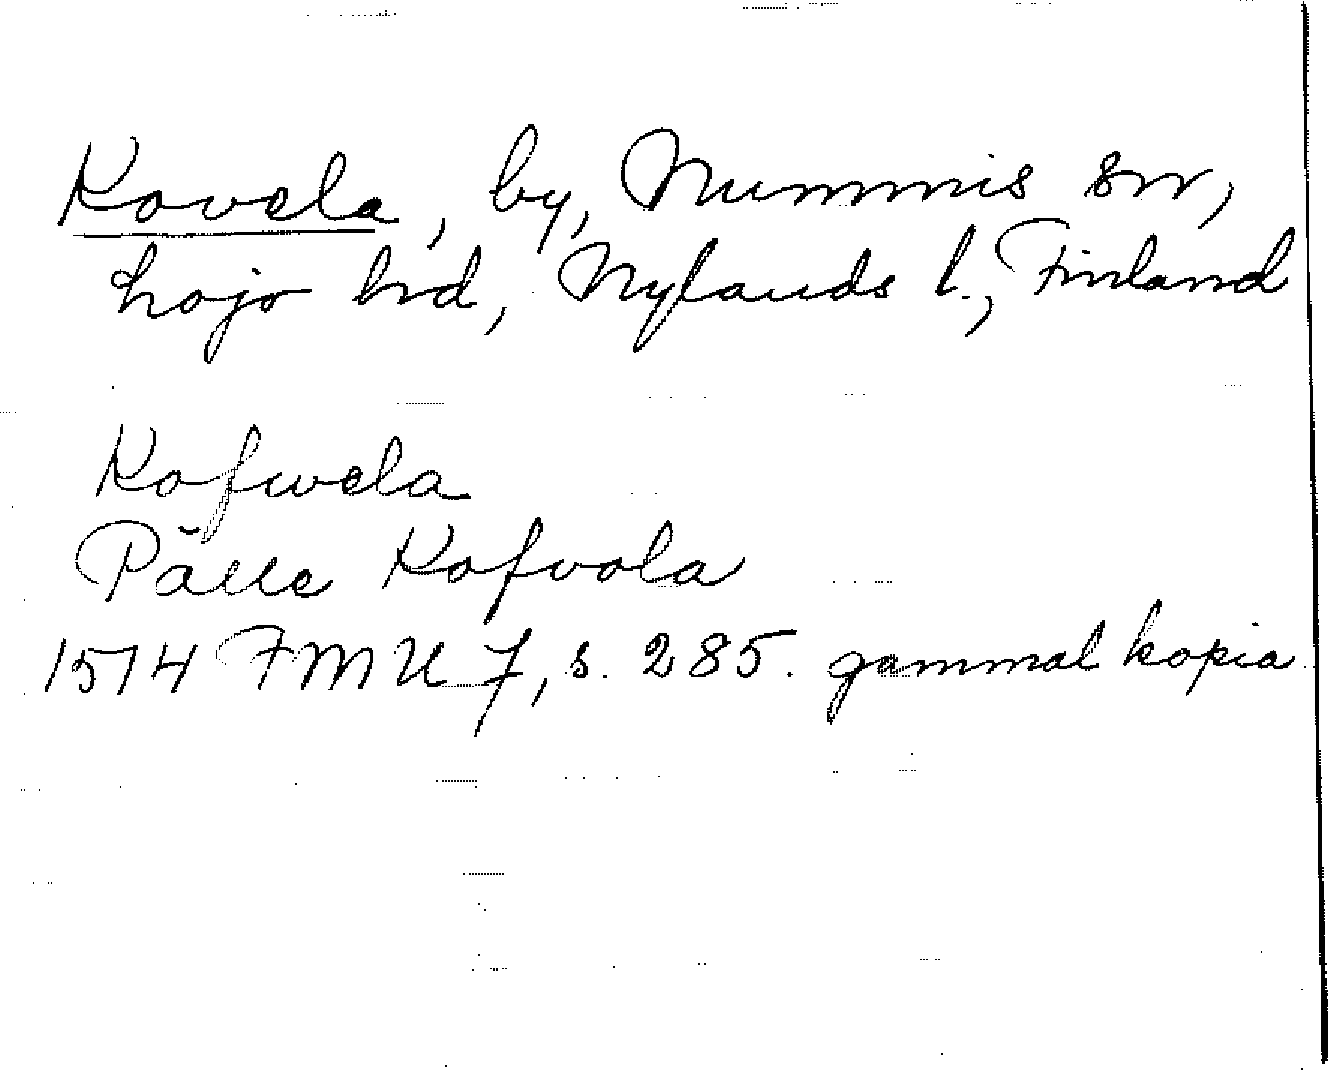 Kovela, by, Nummis sn,
Lojo hd, Nylands l., Finland
Kofwela
Pālle Kofvola
1514 FMU 7, s. 285. gammal kopia